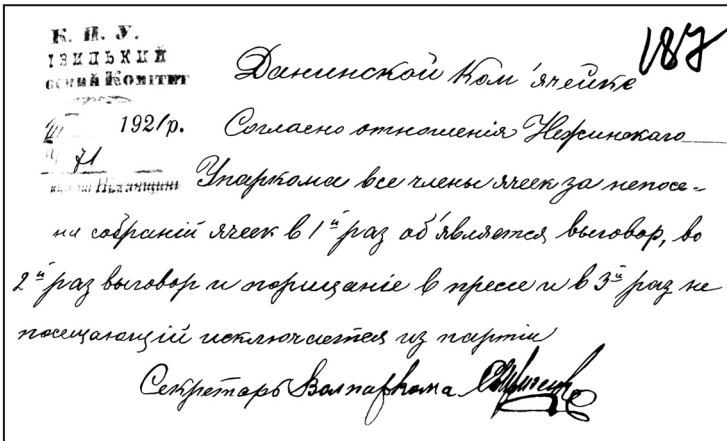 187
К. П. У.
сский Комітет
Данинской Ком'ячейке
1921р.
71
Согласно отношенія Нежинскаго
Упаркома все члены ячеек за непосе-
на собраній ячеек в 1й раз об'является выговор, во
2й раз выговор и порицаніе в прессе и в 3й раз не
посещающій исключается из партіи
Секретарь Волпаркома